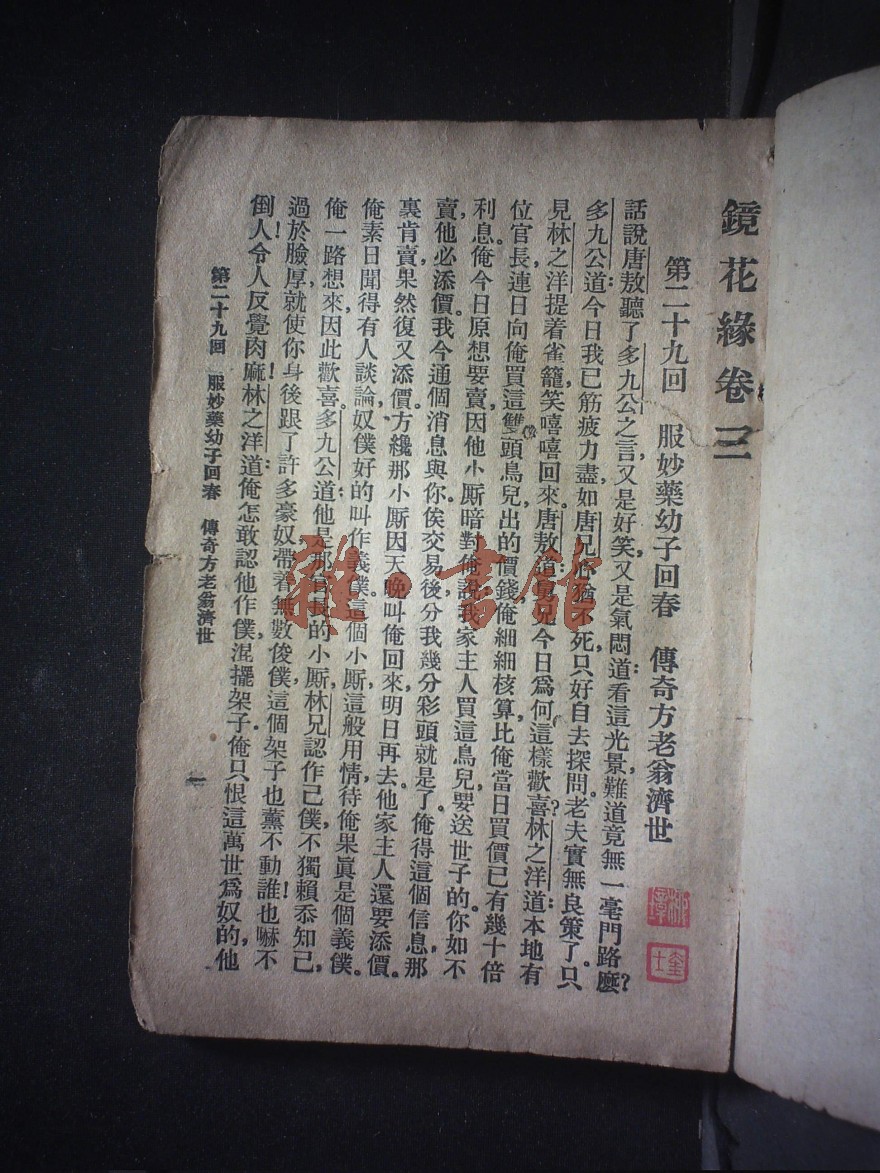 鏡花緣卷三
第二十九回 服妙藥幼子回春 傳奇方老翁濟世
話說唐敖聽了多九公之言，又是好笑，又是氣悶道：看這光景，難道竟無一毫門路麽？
多九公道：今日我已筋疲力盡，如唐兄心猶不死，只好自去探問。老夫實無良策了。只
見林之洋提着雀籠，笑嘻嘻回來。唐敖道：舅兄今日爲何這樣歡喜？林之洋道：本地有
位官長連日向俺買這雙頭鳥兒，出的價錢，俺細細核算，比俺當日買價已有幾十倍
利息。俺今日原想要賣，因他小厮暗對俺說：我家主人買這鳥兒，要送世子的，你如不
賣，他必添價。我今通個消息與你，俟交易後，分我幾分彩頭就是了。俺得這個信息，那
裏肯賣，果然復又添價。方纔那小厮因天晚，叫俺回來，明日再去，他家主人還要添價。
俺素日聞得有人談論，奴僕好的叫作義僕。這個小厮這般用情待俺，果眞是個義僕。
俺一路想來，因此歡喜。多九公道：他是那官長的小厮，林兄認作己僕，不獨賴忝知己，
過於臉厚，就使你身後跟了許多豪奴，帶着無數俊僕，這個架子也薰不動誰，也嚇不
倒人！令人反覺肉麻。林之洋道：俺怎敢認他作僕，混擺架子。俺只恨這萬世爲奴的，他
第二十九回 服妙藥幼子回春 傳奇方老翁濟世
一
雜·書館